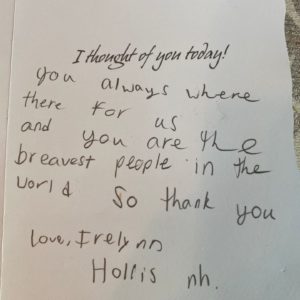 I thought of you today!
you always where
there for us
and you are the
breavest people in the
world so thank you
love, Irelynn
Hollis nh.